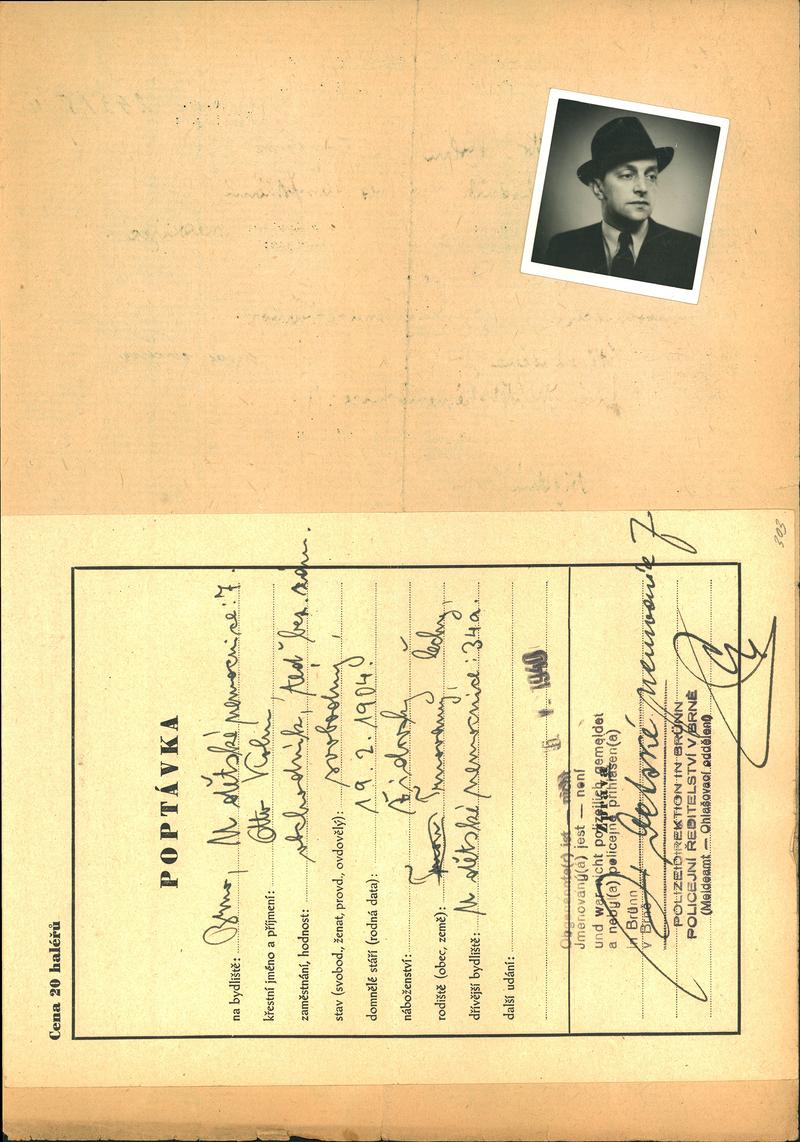 Cena 20 haléřů
POPTÁVKA
na bydliště: Brno, U dětské nemocnice: 7.
křestní jméno a příjmení: Otto Kohn
zaměstnání, hodnost: obchodník, teď bez zam.
stav (svobod., ženat, provd., ovdovělý): svobodný
domnělé stáří (rodná data): 19. 2. 1904.
náboženství: židovský
rodiště (obec, země): Čechy
dřívější bydliště: U dětské nemocnice: 34a.
další udání:
1940
Zpráva
ist — nicht
Jmenovaný(á) jest — není
und war nicht polizeilich gemeldet
a neby(a) policejně přihlášen(a)
in Brünn
v Brně
Dětské nemocnice 7
POLIZEIDIREKTION IN BRÜNN
POLICEJNÍ ŘEDITELSTVÍ V BRNĚ
(Meldeamt — Ohlašovací oddělení)
303